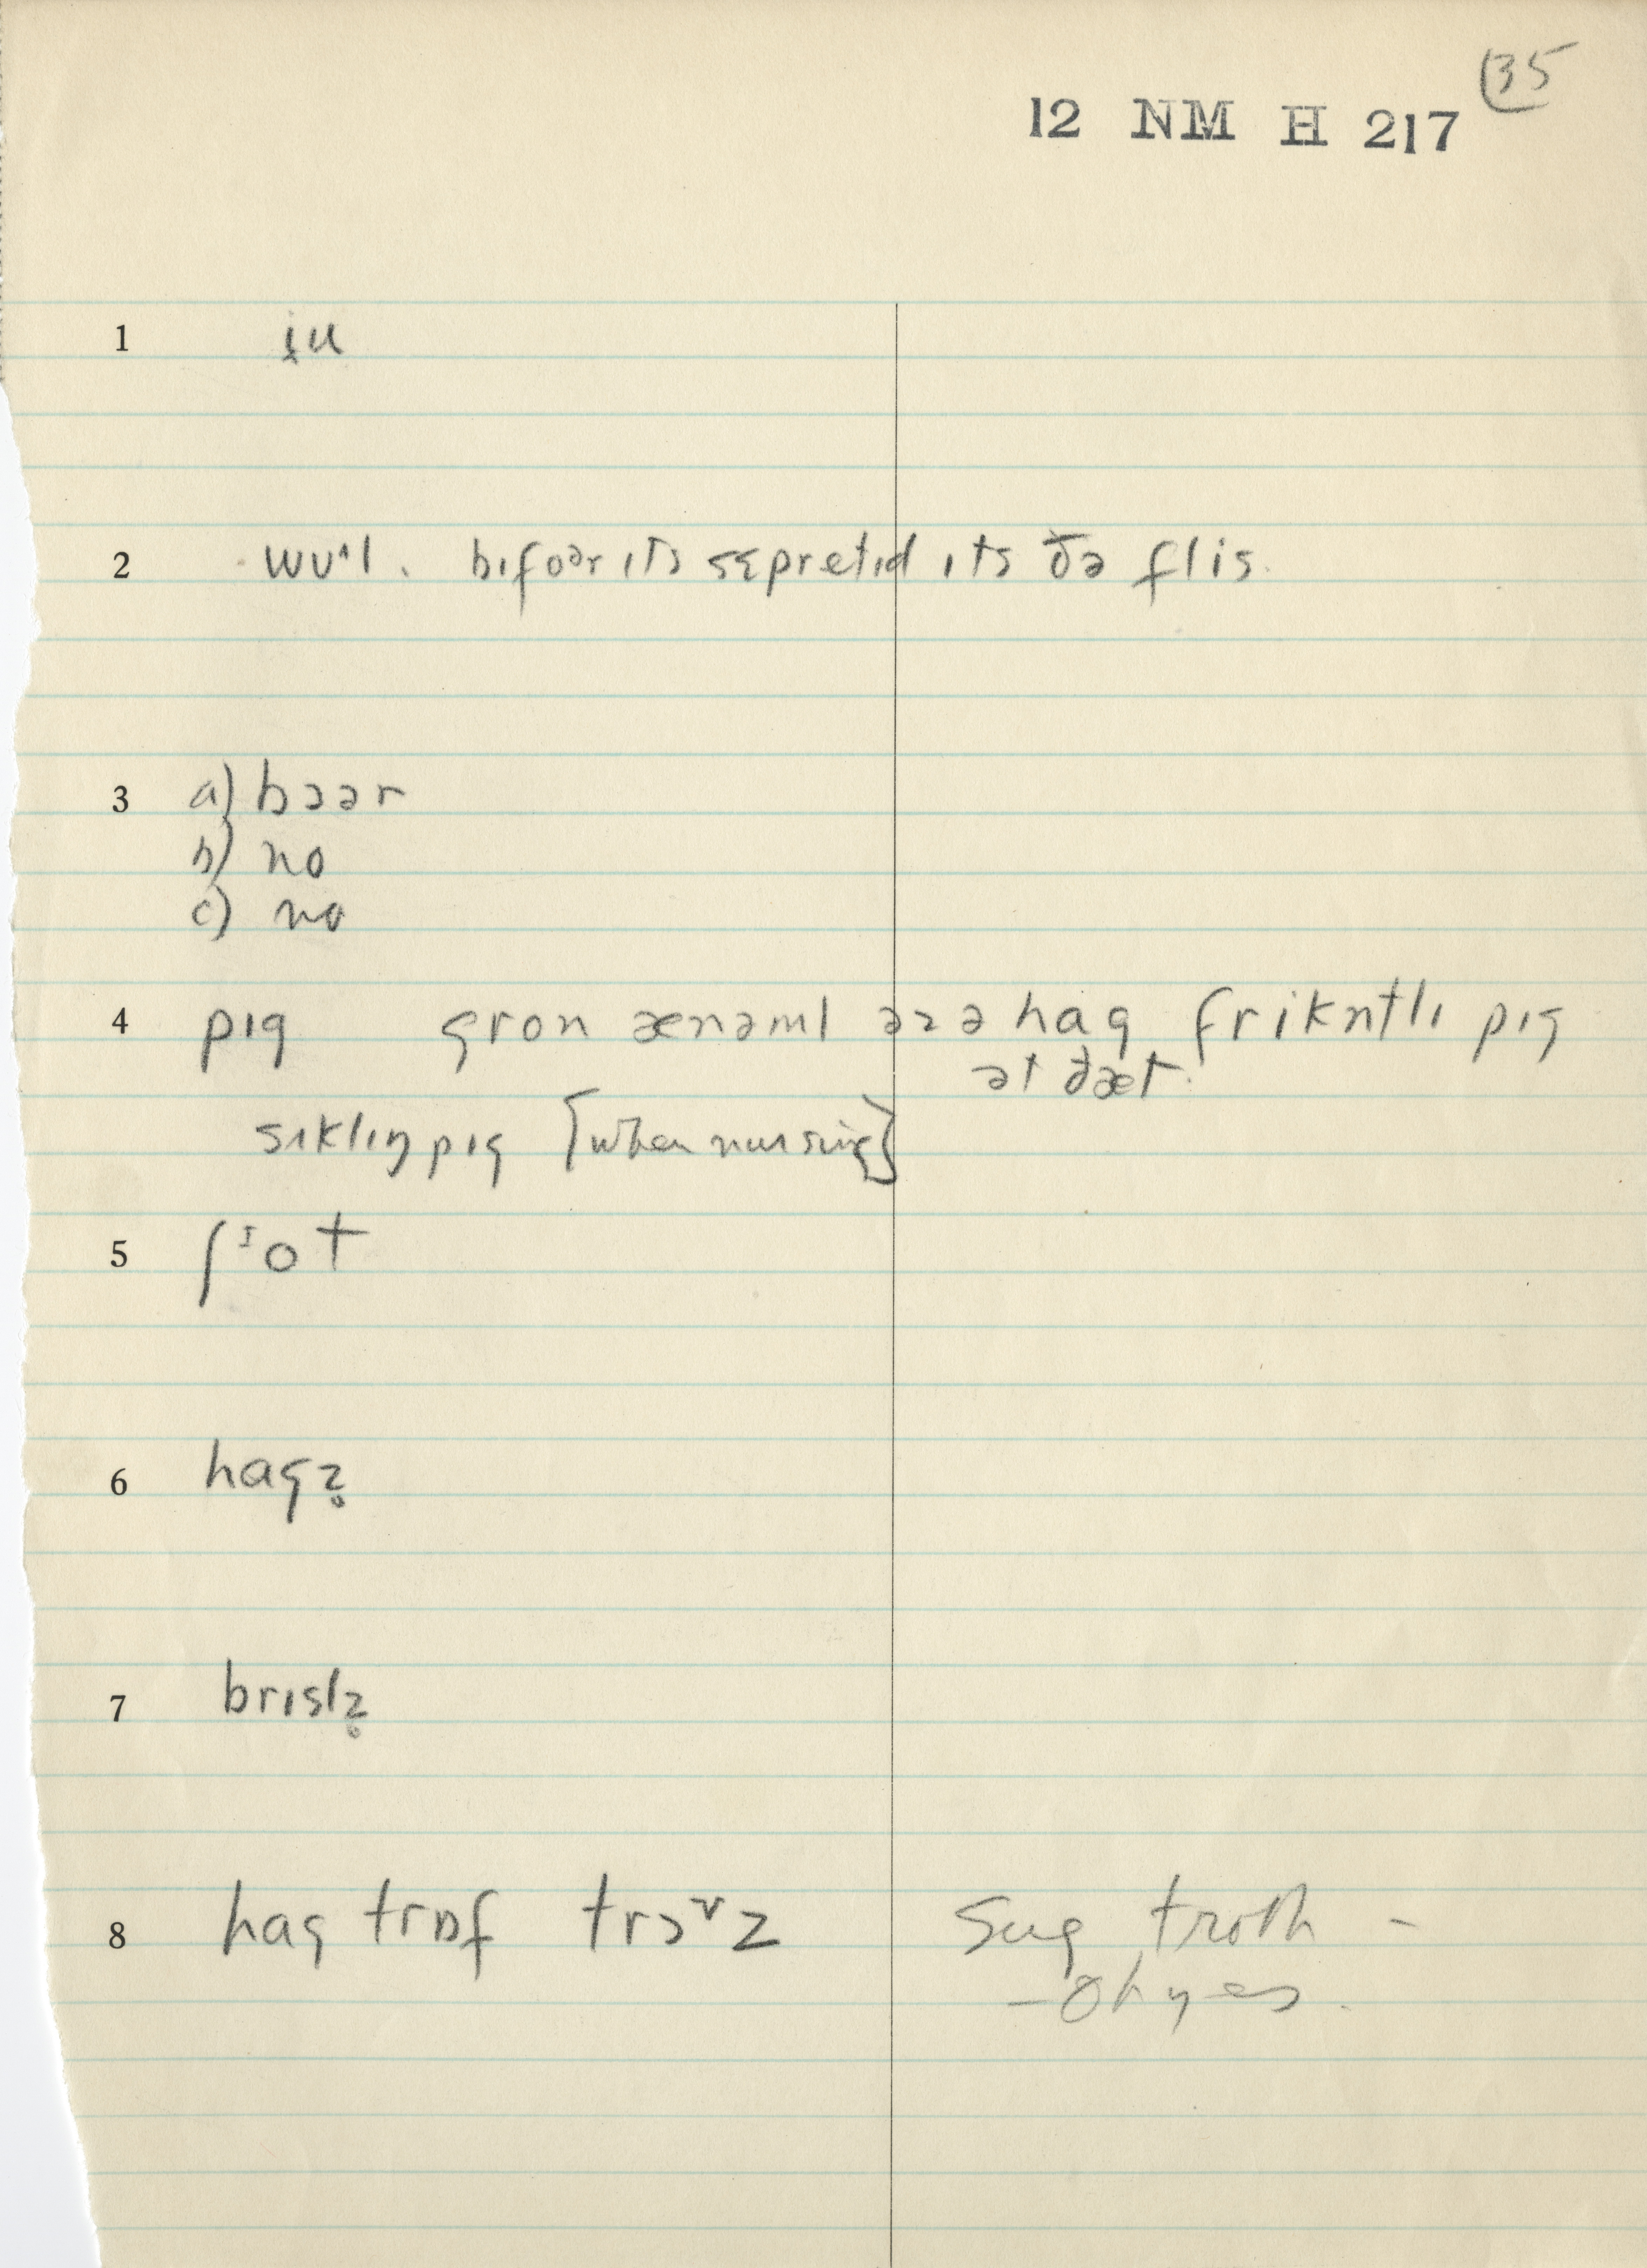 35
12 NM H 217
1 i̯u
2 wʊ˄l. bɪfoər ɪts sɛpretɪd ɪts ðə flis.
3 a) bɔər
b) no
c) no
4 pɪg gron ænəml əzə hag frikntlɪ pɪg
ət ðæt.
sʌklɪŋ pɪg [when nursing]
5 ʃɪot
6 hagz̥
7 brɪslz̥
8 hag trɒf trɔ˅z Sug troth -
- Oh yes.